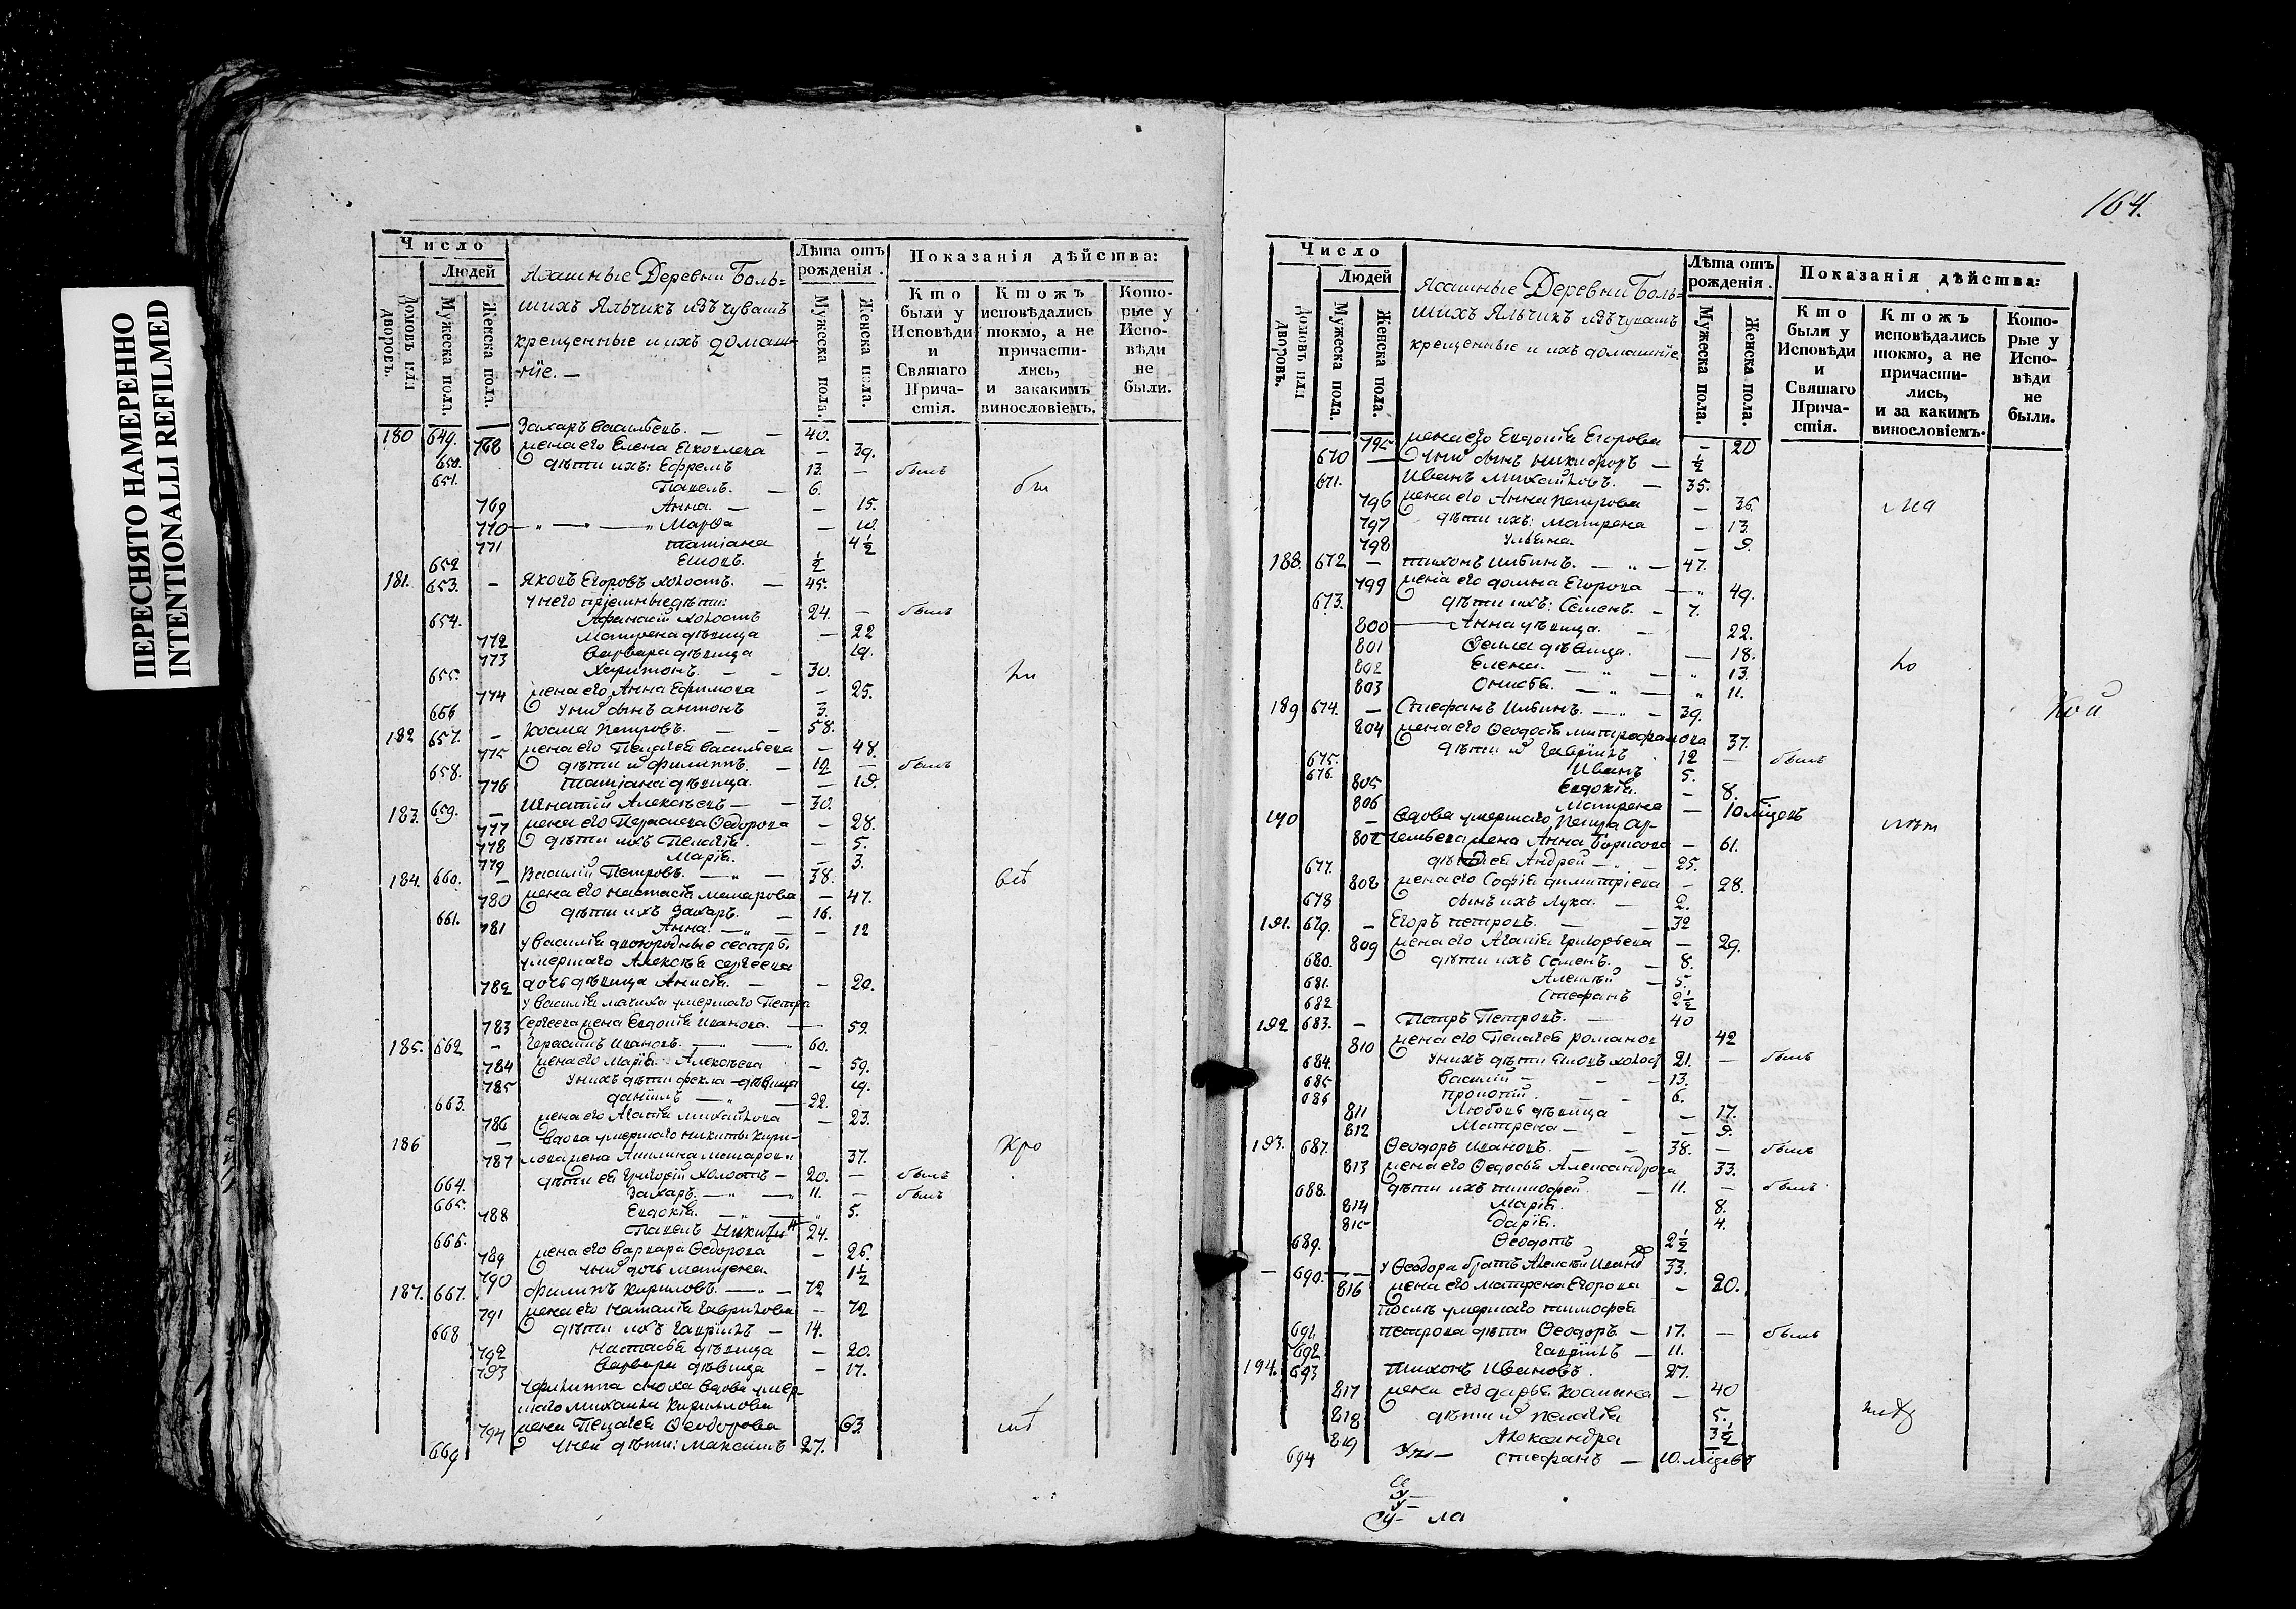 ПЕРЕСНЯТО НАМЕРЕННО
INTENTIONALLI REFILMED
Число
Людей
Домовъ или дворовъ.
Мужеска пола.
Женска пола.
Ясашные Деревни Боль=
шихъ Яльчикъ изъ чувашъ
крещенные и ихъ домаш-
-ніе. —
Лѣта отъ рожденія.
Мужеска пола.
Женска пола.
Показанія дѣйства:
Кто были у Исповѣди и Святаго Прича-стія.
Ктожъ исповѣдались токмо, а не причасти-лись, и закакимъ винословіемъ.
Кото-рые у Испо-вѣди не были.
180 649. — Захаръ Васильевъ. — 40.
768 жена его Елена — 39.
650. дѣти ихъ: Ефремъ 13. — былъ
651. Павелъ. — 6.
769 Анна. — — 15.
770 Марѳа — 10.
771 Татіана 4½
652 ½
181. 653. — Яковъ Егоровъ холостъ. — 45.
у него пріемные дѣти:
654. Афанасій холостъ 24. — былъ
772 Матрена дѣвица — 22
773 Варвара дѣвица 19.
655. Харитонъ. — 30.
774 жена его Анна Ефимова — 25.
656 у них сынъ антонъ 3.
182 657. — Косма Петровъ. — 58.
775 жена его Пелагея Васильева — 48.
658. дѣти их филиппъ. — 12 — былъ
776 Татіана дѣвица. — 19.
183. 659. — Игнатій Алексѣевъ — 30.
777 жена его Ѳедорова — 28.
778 дѣти ихъ Пелагія. — 5.
779 Марія. — 3.
184. 660. — Василій Петровъ. — 38.
780 жена его Настасія — 47.
661. дѣти ихъ Захаръ. — 16.
781 Анна. — — 12
у Василія двоюродные сестры
умершаго Алексѣя Сергеева
782 дочь дѣвица Анисія. — — 20.
у Василія мачиха умершаго Петра
783 Сергеева жена Евдокія Иванова. — 59.
185. 662 — Герасимъ Ивановъ. — 60.
784 жена его Марія Алексѣева — 59.
785 у нихъ дѣти фекла дѣвица 19.
663. даніилъ — 22.
786 жена его Агапія Михайлова — 23.
186 — вдова умершаго никиты Кири-
787 лова жена Акилина 37.
664. дѣти ея Григорій холостъ — 20. — былъ
665. Захаръ. — 11. — былъ
788 Евдокія. — 5.
666. Павелъ Никитинъ 24.
789 жена его Варвара Ѳедорова — 26.
790 у них дочь матрена. 1½
187. 667. филипъ Кириловъ. — 72
791 жена его Наталія Гаврилова — 72
668 дѣти ихъ Гавріилъ — 14.
792 Настасья дѣвица — 20.
793 Варвара дѣвица — 17.
у филиппа сноха вдова умер-
шаго михаила Кириллова
794 жена Пелагея Ѳеодорова 63.
669 у ней дѣти: Максимъ 27.
164.
Число
Людей
Домовъ или дворовъ.
Мужеска пола.
Женска пола.
Ясашные Деревни Боль=
шихъ Яльчикъ изъ чувашъ
крещенные и ихъ домашніе.
Лѣта отъ рожденія.
Мужеска пола.
Женска пола.
Показанія дѣйства:
Кто были у Исповѣди и Святаго Прича-стія.
Ктожъ исповѣдались токмо, а не причасти-лись, и за какимъ винословіемъ.
Кото-рые у Испо-вѣди не были.
795 жена его Евдокія Егорова — 20
670 — у них сынъ никифоръ — ½
671. Иванъ Михайловъ. — 35.
796 жена его Анна Петрова — 36.
797 дѣти ихъ: Матрена — 13.
798 Ульяна. — 9.
188. 672 — тихонъ Ильинъ. — 47.
799 жена его домна Егорова — 49.
673. дѣти ихъ: Семенъ. — 7.
800 Анна дѣвица. — 22.
801 Ѳекла дѣвица. — 18.
802 Елена. — 13.
803 — 11.
189 674. — Стефанъ Ильинъ. — 39.
804 жена его Ѳеодосія митрофанова 37.
675. дѣти их Гавріилъ 12 — былъ
676. Иванъ 5.
805 Евдокія. — 8.
806 Матрена — 10 мѣсецъ
190 — вдова умершаго Петра Ар-
807 темьева жена Анна Борисова — 61.
677. Андрей — 25.
808 жена его Софія димитріева — 28.
678 сынъ ихъ Лука. — 2.
191. 679. — Егоръ петровъ. — 32
809 жена его Агапія Григорьева — 29.
680. дѣти ихъ Семенъ. — 8.
681. Алексѣй — 5.
682 Стефанъ 2½
192 683. — Петръ Петровъ. — 40
810 жена его Пелагея романов 42
684. у нихъ дѣти 21. — былъ
685 Василій — 13.
686 6.
811 Любовь дѣвица — 17.
812 Матрена — — 9.
193. 687. Ѳеодоръ Ивановъ. — 38. — былъ
813 жена его Ѳедосья Александрова 33.
688. дѣти ихъ тимофей — 11. — былъ
814 Марія. 8.
815 дарія. 4.
689. Ѳеодотъ 2½
— 690. — у Ѳеодора братъ Алексѣй Иванов 33.
816 жена его матрена Егорова — 20.
послѣ умершаго тимофея
691. петрова дѣти Ѳеодоръ — 17. — былъ
692. Гавріилъ — 11.
194. 693 тихонъ Ивановъ. 27.
817 жена его дарья Космина — 40
818 дѣти их пелагія 5.
819 Александра 3½
694 Стефанъ — 10. мѣсецъ